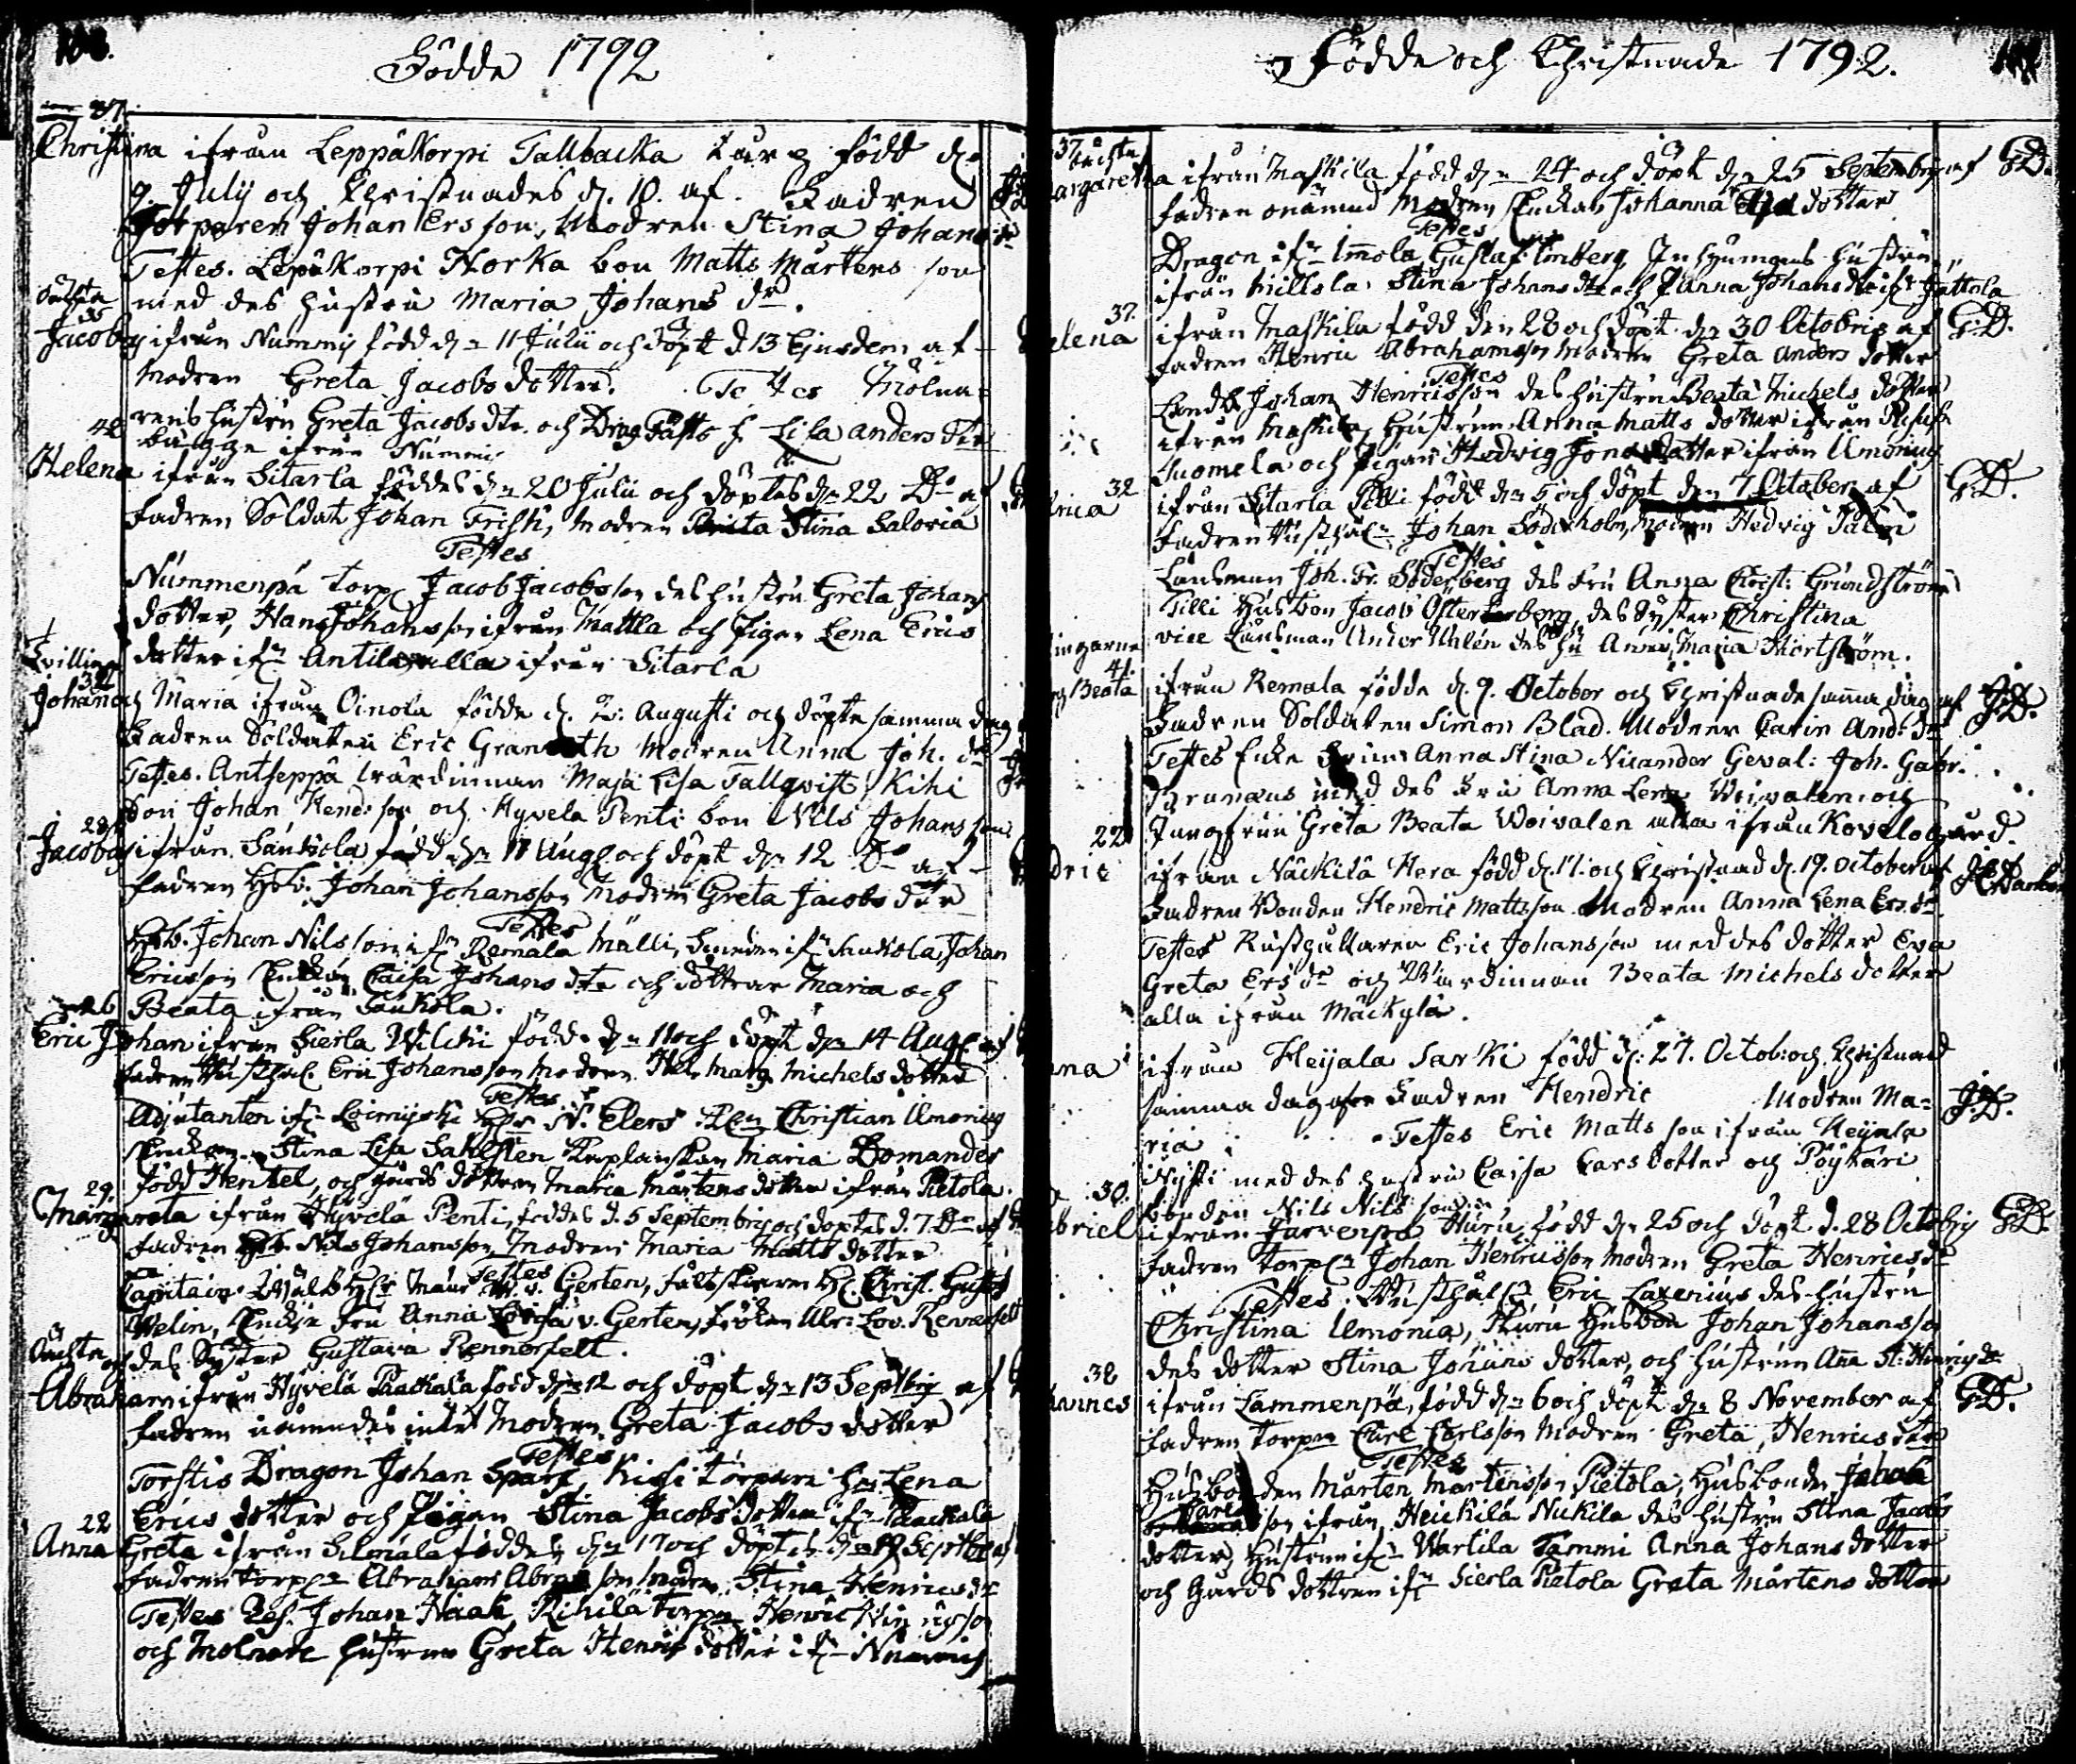 Födde 1792
37
Christina ifrån Leppäkorpi Tallbacka torp född d.
9. July och Christnades d. 10. af. Fadren
Torparen Johan Ersson, Modren Stina Johans dr
Testes. Lepäkorpi Horka bon Matts Mårtens son
med des hustru Maria Johans dr.
oäkta
35
Jacob ifrån Nummis född d:n 11 Julii och döpt d. 13 Ejusdem af
Modren Greta Jacobs dotter. Testes Molna=
rens hustru Greta Jacobs dtr. och Drag. Fästs h. Lisa anders dtr
bägge ifrån Nummis
42
Helena ifrån Sitarla föddes d:n 20 Julii och döptes d:n 22 D:o af
Fadren Soldat Johan Frisk, Modren Stina Saloria
Testes
Nummenpä torp. Jacob Jacobsson des hustru Greta Johans
dotter, Hans Johansson ifrån Mattla och Pigan Lena Erics
dotter ifn Antila alla ifrån Sitarla
Tvillingar
32
Johan och Maria ifrån Oinola födde d. 2. Augusti och döpte samma dag
Fadren Soldaten Eric Granroth Modren Anna Joh. dr
Testes. Antseppä wärdinnan Maja Lisa Tallqvist, Kihi
bon Johan Hend:son och Hyvelä Penti bon Nils Johans son
28
Jacob ifrån Saukola född d:n 11 Aug. och döpt d:n 12 D:o af
Fadren Hb. Johan Johansson Modren Greta Jacobs dtr
Testes
Hb. Johan Nilsson ifn Remala Mälli, Smeden ifn Saukola, Johan
Ericsson Enkan Caisa Johans dtr och döttrar Maria och
Beata ifrån Saukola.
26
Eric Johan ifrån Sierla Wilcki född d:n 11 och döpt d:n 14 Aug. af
Fadren Rusthål. Eric Johansson Modren Hel. Marg. Michels dotter
Testes
Adjutanten ifn Loimijoki Hr N. Elers Christian Umonius
Enckan Stina Lisa Sahlsten Kaplanskan Maria Bomander
född Hentel, och gårds dottren Maria Mårtens dotter ifrån Pietola.
29.
Margareta ifrån Hyvelä Penti, föddes d. 5 Septembris och döptes d. 7 D:o af
Fadren Hb. Nils Johansson Modren Maria Matts dotter
Testes
Capitain Wälb Hr Maur. W. v. Gerten, fältskiären H. Christ. Gustaf
Welin, Enckje fru Anna Lovisa v. Gerten, fröken Ulr: Lov. Rennerfelt
och des Syster Gustava Rennerfelt.
Oäckta
Abraham ifrån Hyvelä Paackala född d:n 12 och döpt d:n 13 Septbris af
Fadren nämndes intet Modren Greta Jacobs dotter
Testes
Torstis Dragon Johan Sparf, Kissi torpare h: Lena
Erics dotter och Pigan Stina Jacobs dotter ifn Paackala
22
Anna Greta ifrån Silmala föddes d:n 17 och döptes d:n 19 Septbr af
Fadren torp:n Abraham Abra son Modren Stina Henrics dr
Testes Res. Johan Haak, Rihilä torp:n Henric Hinricsson
och Molnare hustrun Greta Henrics dotter ifn Nummis

Födde och Christnade 1792.
37
oächta
Margaretha ifrån Maskila född d:n 24 och döpt d:n 25 Septembris af GD.
Fadren onämnd Modren Enckan Johanna dotter
Testes
Dragon ifn Immola Gustaf Limberg, Inhysmans hustru
ifrån Millola Stina Johans dtr och Anna Johans dtr ifn Jättola
37.
Helena ifrån Maskila född den 28 och döpt d:n 30 Octobris af GD.
Fadren Henric Abrahamsson Modren Greta Anders dotter
Testes
Landb. Johan Henricsson des hustru Beata Michels dotter
ifrån Maskila, hustrun Anna Matts dotter ifrån
Suomela och Pigan Hedvig Jonæ dotter ifrån Umonius
32
rica ifrån Sitarla Tilli född den 5 och döpt den 7 October af GD.
Fadren Rusthål:n Johan Söderholm, Modren Hedvig Palin
Testes
Länsman Joh. Fr. Söderberg des Fru Anna Christ: Grundström
Tilli Husbon Jacob Österberg, des Syster Christina
vice Länsman Ander Ahlén des hu Anna Maria Hiertström.
ingarne
41.
g Beata ifrån Remala födde d. 9. October och Christnade samma dag af JD.
Fadren Soldaten Simon Blad. Modren Carin And: dr
Testes Enke Fruen Anna Stina Nicander Geval: Joh. Gabr.
Forunæus med des Fru Anna Lena Woivalen och
Jungfrun Greta Beata Woivalen alla ifrån Kovelo gård.
22
dric ifrån Näckilä Hera född d. 17. och Christnad d. 19. October af
Fadren Bonden Hendric Mattsson. Modren Anna Lena Ers dr
Testes Rusthållaren Eric Johansson med des dotter Eva
Greta Ers dr och Wärdinnan Beata Michels dotter
alla ifrån Mäckylä.
na ifrån Heijala Sarki född d: 27. Octob: och Christnad
samma dag af Fadren Hendric Modren Ma= JD.
ria . . . Testes Eric Matts son ifrån Heijala
Nysti med des hustru Caisa Lars dotter och Pöykäri
bonden Nils Nils son
30.
briel ifrån Jarvenpä Huru född d:n 25 och döpt d. 28 Octobris GD.
Fadren torp:n Johan Henricsson Modren Greta Henrics dr
Testes Rusthål: Eric Laxerius des hustru
Christina Umonia, Huru Husbon Johan Johansson
des dotter Stina Johans dotter, och hustrun Ana St: Henrics dr
38
hannes ifrån Lammenpä, född d:n 6 och döpt d:n 8 November af GD.
Fadren torp:n Carl Carlsson Modren Greta, Henrics dtr
Testes
Husbonden Mårten Mårtensson Pietola, Husbonde Johan
Carl son ifrån Heickilä Nickila des hustru Stina Jacobs
dotter, hustrun ifn Wartila Tammi Anna Johans dotter
och Gårds dottren ifn Sierla Pietola Greta Mårtens dotter